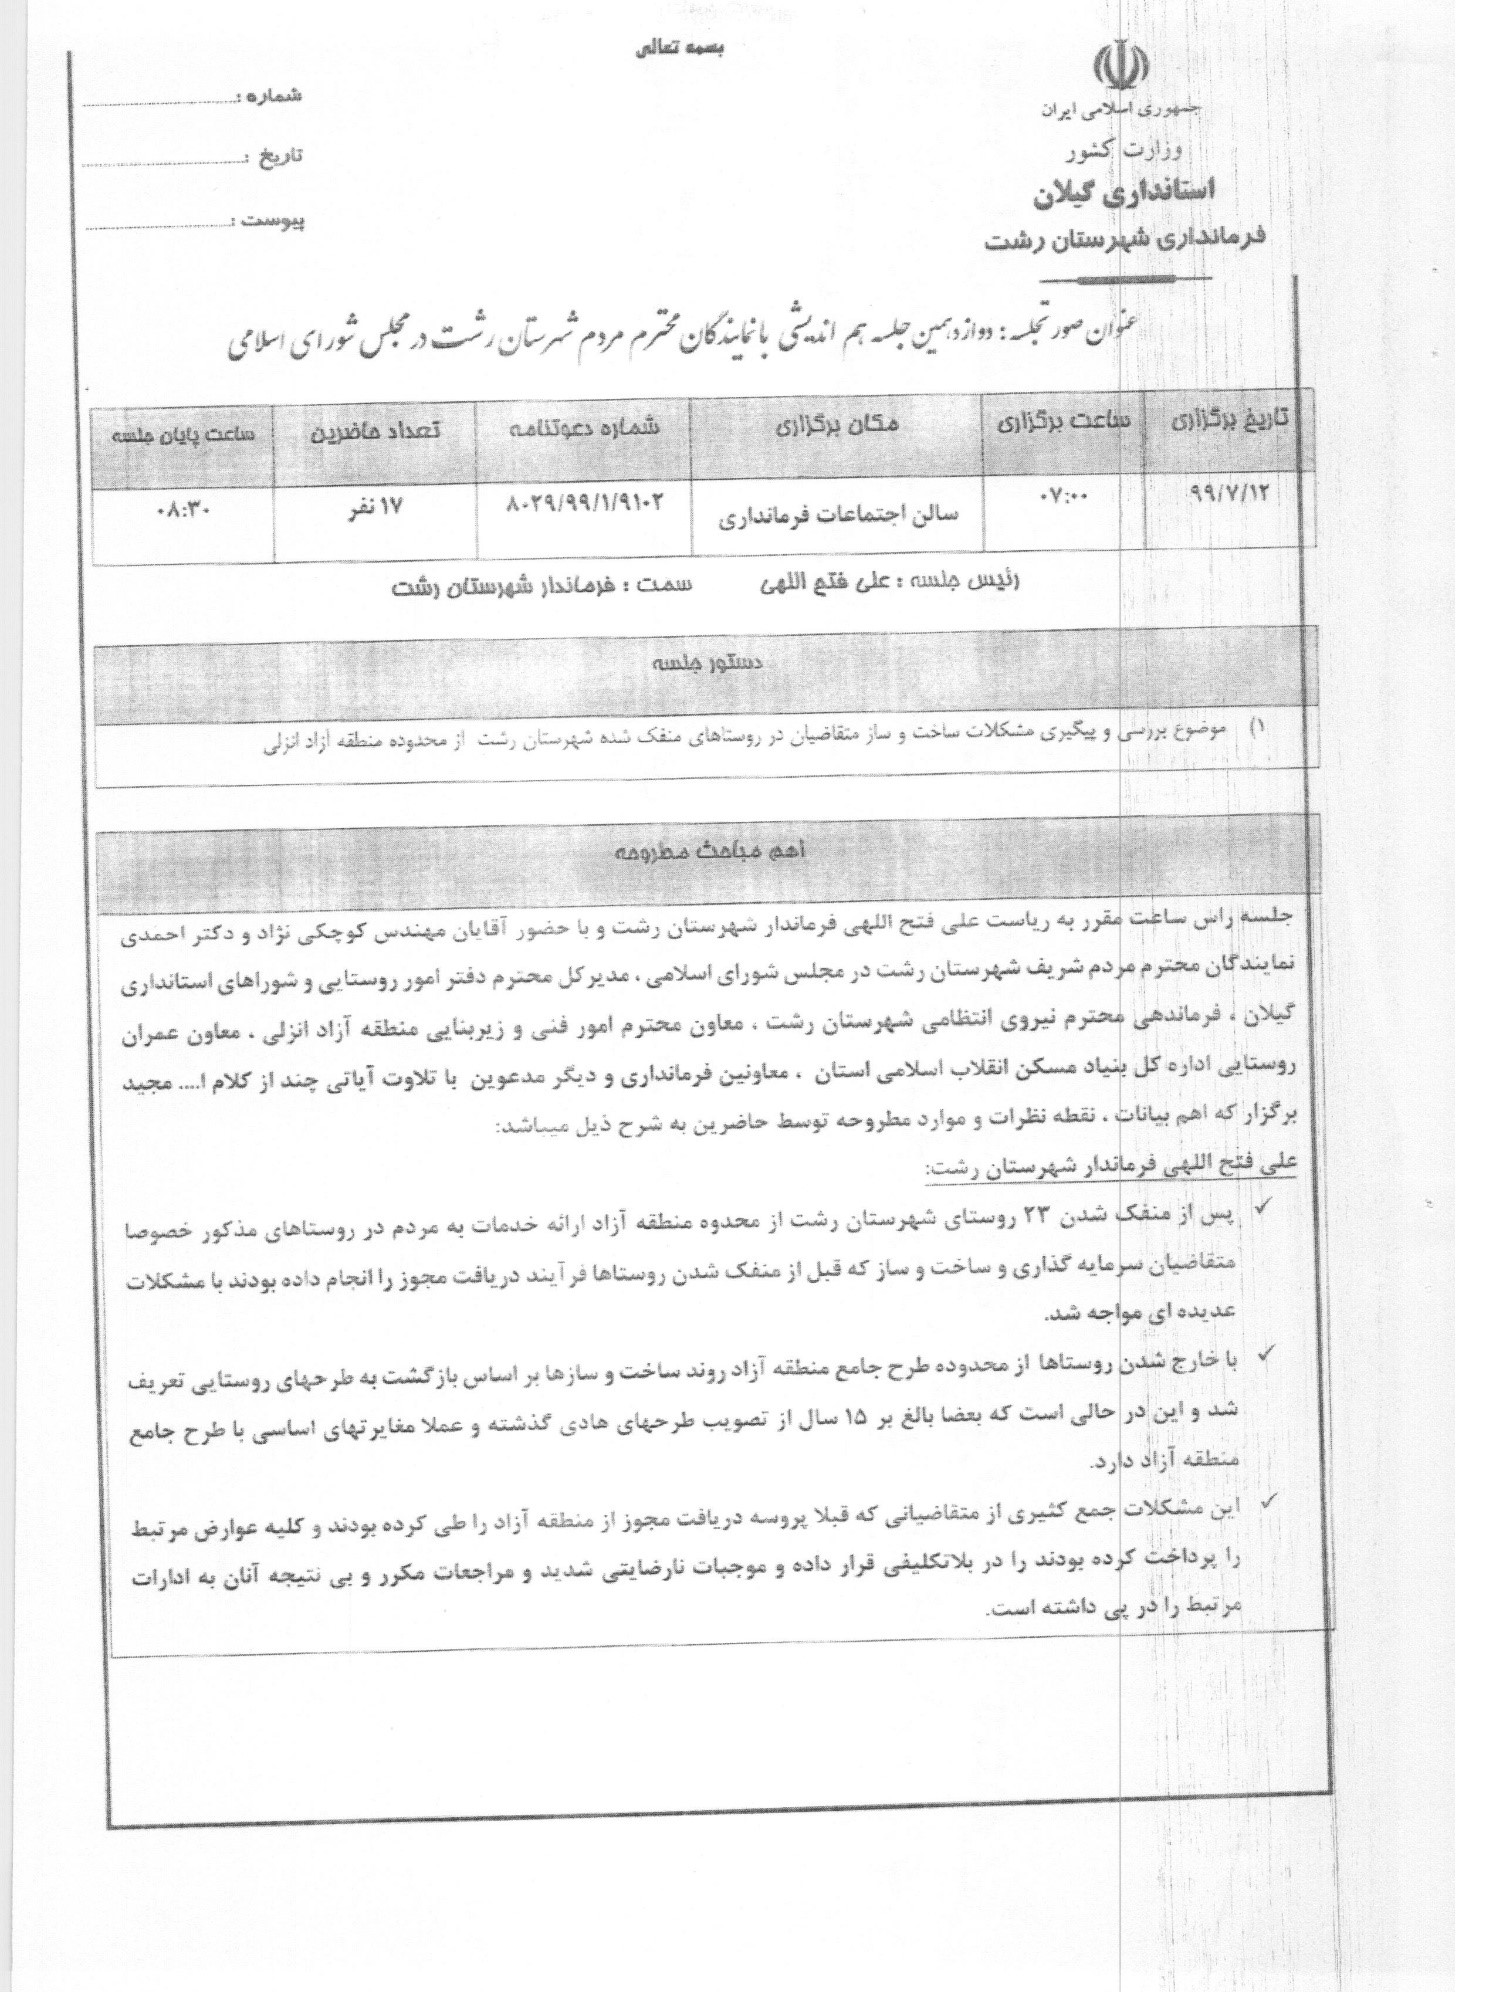 بسمه تعالی
جمهوری اسلامی ایران
وزارت کشور
استانداری گیلان
فرمانداری شهرستان رشت
شماره :
تاریخ :
پیوست :
عنوان صورتجلسه : دوازدهمین جلسه هم اندیشی با نمایندگان محترم مردم شهرستان رشت در مجلس شورای اسلامی
تاریخ برگزاری ساعت برگزاری مکان برگزاری شماره دعوتنامه تعداد حاضرین ساعت پایان جلسه
۹۹/۷/۱۲ ۰۷:۰۰ سالن اجتماعات فرمانداری ۸۰۲۹/۹۹/۱/۹۱۰۲ ۱۷ نفر ۰۸:۳۰
رئیس جلسه : علی فتح اللهی سمت : فرماندار شهرستان رشت
دستور جلسه
۱) موضوع بررسی و پیگیری مشکلات ساخت و ساز متقاضیان در روستاهای منفک شده شهرستان رشت از محدوده منطقه آزاد انزلی
اهم مباحث مطروحه
جلسه راس ساعت مقرر به ریاست علی فتح اللهی فرماندار شهرستان رشت و با حضور آقایان مهندس کوچکی نژاد و دکتر احمدی
نمایندگان محترم مردم شریف شهرستان رشت در مجلس شورای اسلامی ، مدیرکل محترم دفتر امور روستایی و شوراهای استانداری
گیلان ، فرماندهی محترم نیروی انتظامی شهرستان رشت ، معاون محترم امور فنی و زیربنایی منطقه آزاد انزلی ، معاون عمران
روستایی اداره کل بنیاد مسکن انقلاب اسلامی استان ، معاونین فرمانداری و دیگر مدعوین با تلاوت آیاتی چند از کلام ا.... مجید
برگزار که اهم بیانات ، نقطه نظرات و موارد مطروحه توسط حاضرین به شرح ذیل میباشد:
علی فتح اللهی فرماندار شهرستان رشت:
✓ پس از منفک شدن ۲۳ روستای شهرستان رشت از محدوه منطقه آزاد ارائه خدمات به مردم در روستاهای مذکور خصوصا
متقاضیان سرمایه گذاری و ساخت و ساز که قبل از منفک شدن روستاها فرآیند دریافت مجوز را انجام داده بودند با مشکلات
عدیده ای مواجه شد.
✓ با خارج شدن روستاها از محدوده طرح جامع منطقه آزاد روند ساخت و سازها بر اساس بازگشت به طرحهای روستایی تعریف
شد و این در حالی است که بعضا بالغ بر ۱۵ سال از تصویب طرحهای هادی گذشته و عملا مغایرتهای اساسی با طرح جامع
منطقه آزاد دارد.
✓ این مشکلات جمع کثیری از متقاضیانی که قبلا پروسه دریافت مجوز از منطقه آزاد را طی کرده بودند و کلیه عوارض مرتبط
را پرداخت کرده بودند را در بلاتکلیفی قرار داده و موجبات نارضایتی شدید و مراجعات مکرر و بی نتیجه آنان به ادارات
مرتبط را در پی داشته است.